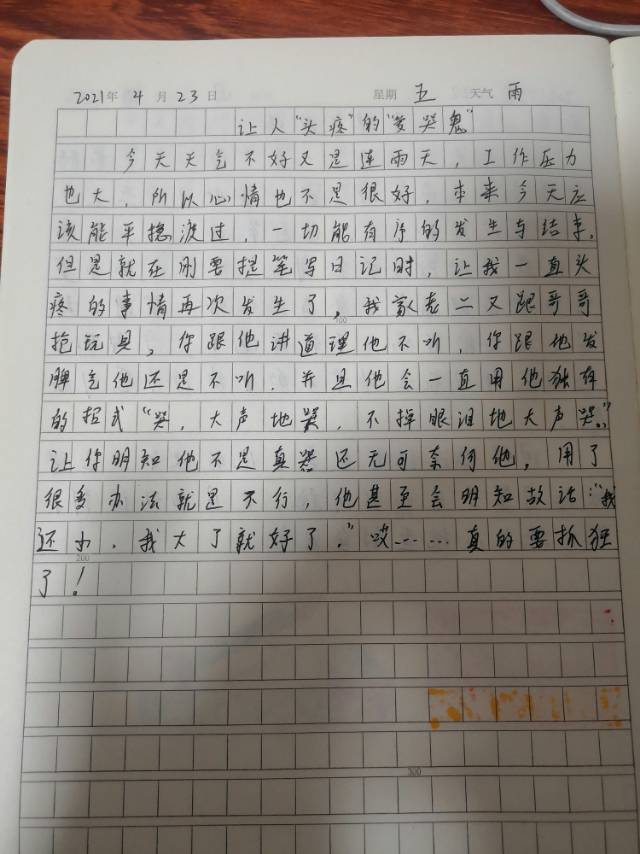 2021年 4月 23日 星期 五 天气 雨
让人"头疼"的"爱哭鬼"
今天天气不好又是连雨天，工作压力
也大，所以心情也不是很好，本来今天应
该能平稳渡过，一切能有序的发生与结束，
但是就在刚要提笔写日记时，让我一直头
疼的事情再次发生了，我家老二又跟哥哥
抢玩具，你跟他讲道理他不听，你跟他发
脾气他还是不听，并且他会一直用他独有
的招式"哭，大声地哭，不掉眼泪地大声哭。"
让你明知他不是真哭还无可奈何他，用了
很多办法就是不行，他甚至会明知故话："我
还小，我大了就好了。"哎……真的要抓狂
了！
200
300